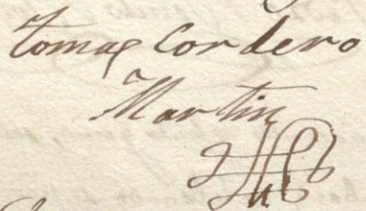 Tomas Cordero
Martin